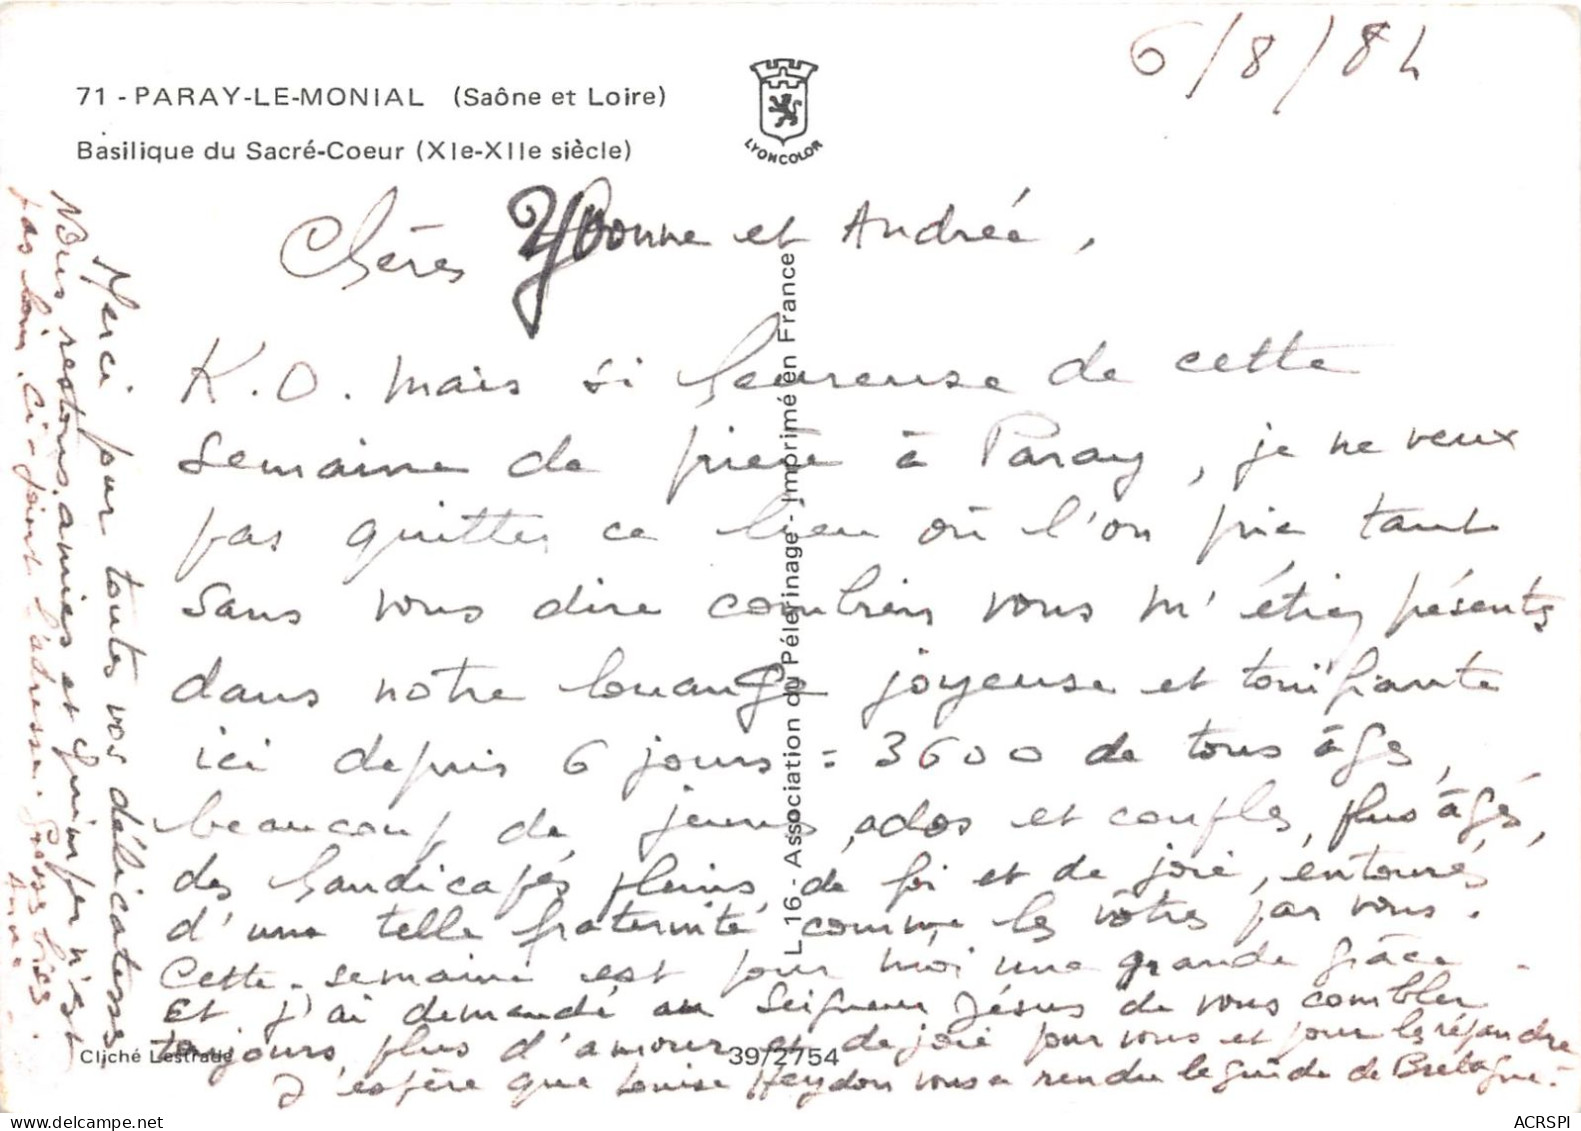 6/8/84
71 - PARAY-LE-MONIAL (Saône et Loire)
Basilique du Sacré-Coeur (XIe-XIIe siècle)
LYONCOLOR
Chères Yvonne et Andrée,
K.O. mais si heureuse de cette
semaine de prière à Paray, je ne veux
pas quitter ce lieu où l'on prie tant
sans vous dire combien vous m'étiez présentes
dans notre louange joyeuse et tonifiante
ici depuis 6 jours = 3600 de tous âges,
beaucoup de jeunes, ados et couples, plus âgés,
des handicapés pleins de foi et de joie, entourés
d'une telle fraternité comme les vôtres par vous.
Cette semaine est pour moi une grande grâce.
Et j'ai demandé au Seigneur Jésus de vous combler
toujours plus d'amour et de joie pour vous et pour les répandre
J'espère que Louise Heydon vous a rendu le guide de Bretagne.
Merci pour toutes vos délicatesses
Nous restons amies et Quimper n'est
pas loin. Ci-joint l'adresse. Grosses bises.
Anne.
L. 16 - Association du Pélerinage - Imprimé en France
Cliché Lestrade
39/2754
ACRSPI